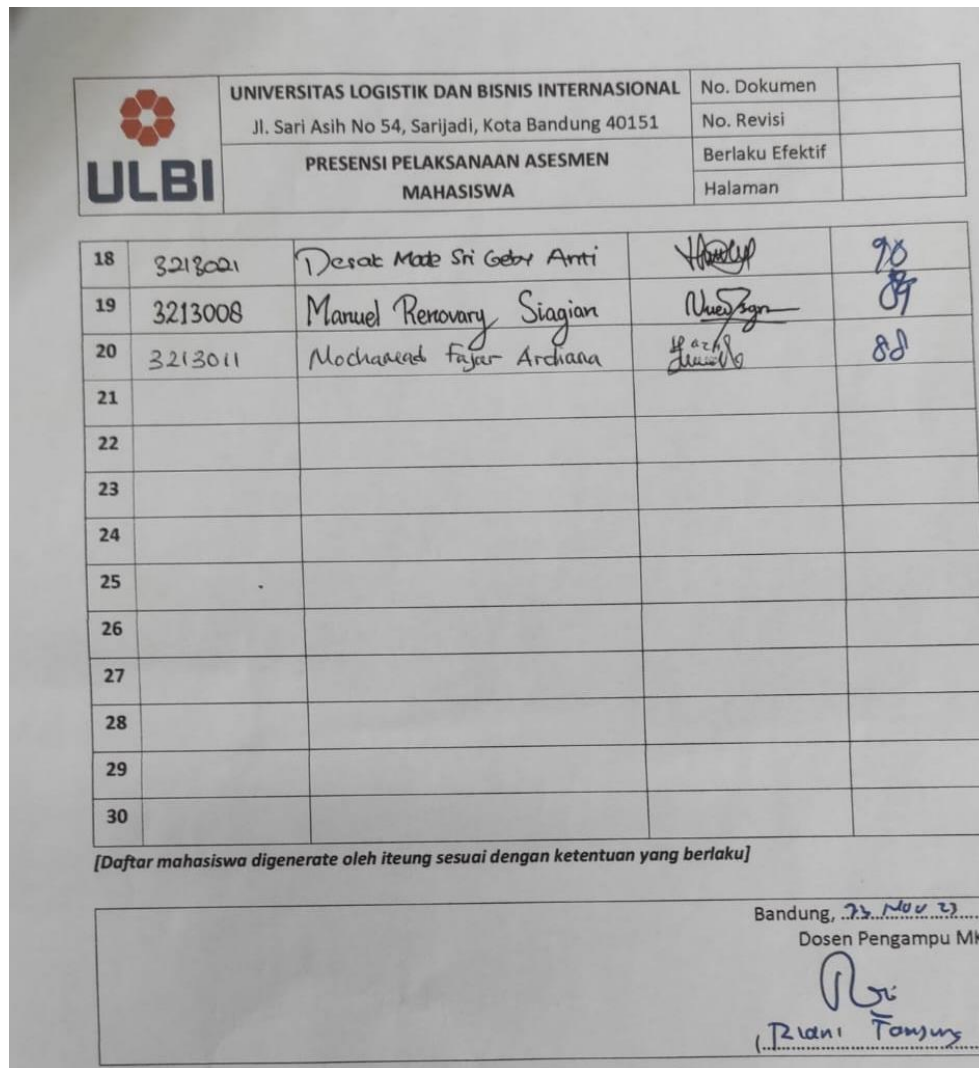 ULBI
UNIVERSITAS LOGISTIK DAN BISNIS INTERNASIONAL
Jl. Sari Asih No 54, Sarijadi, Kota Bandung 40151
PRESENSI PELAKSANAAN ASESMEN
MAHASISWA
No. Dokumen
No. Revisi
Berlaku Efektif
Halaman
18 3213021 Desak Made Sri Geby Anti 90
19 3213008 Manuel Renovary Siagian
20 3213011 Fajar Archana 88
21
22
23
24
25
26
27
28
29
30
[Daftar mahasiswa digenerate oleh iteung sesuai dengan ketentuan yang berlaku]
Bandung, 23 Nov 23
Dosen Pengampu MK
(Riani Tanjung